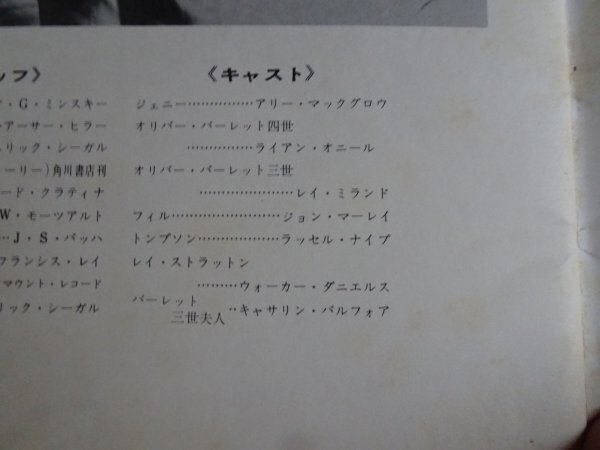 ッフ》
・G・ミンスキー
アーサー・ヒラー
リック・シーガル
ーリー)角川書店刊
ード・クラティナ
W・モーツアルト
…J・S・バッハ
フランシス・レイ
マウント・レコード
リック・シーガル
《キャスト》
ジェニー……………アリー・マックグロウ
オリバー・バーレット四世
……………ライアン・オニール
オリバー・バーレット三世
…………………レイ・ミランド
フィル…………………ジョン・マーレイ
トンプソン………………ラッセル・ナイプ
レイ・ストラットン
………ウォーカー・ダニエルス
バーレット
三世夫人‥キャサリン・バルフォア